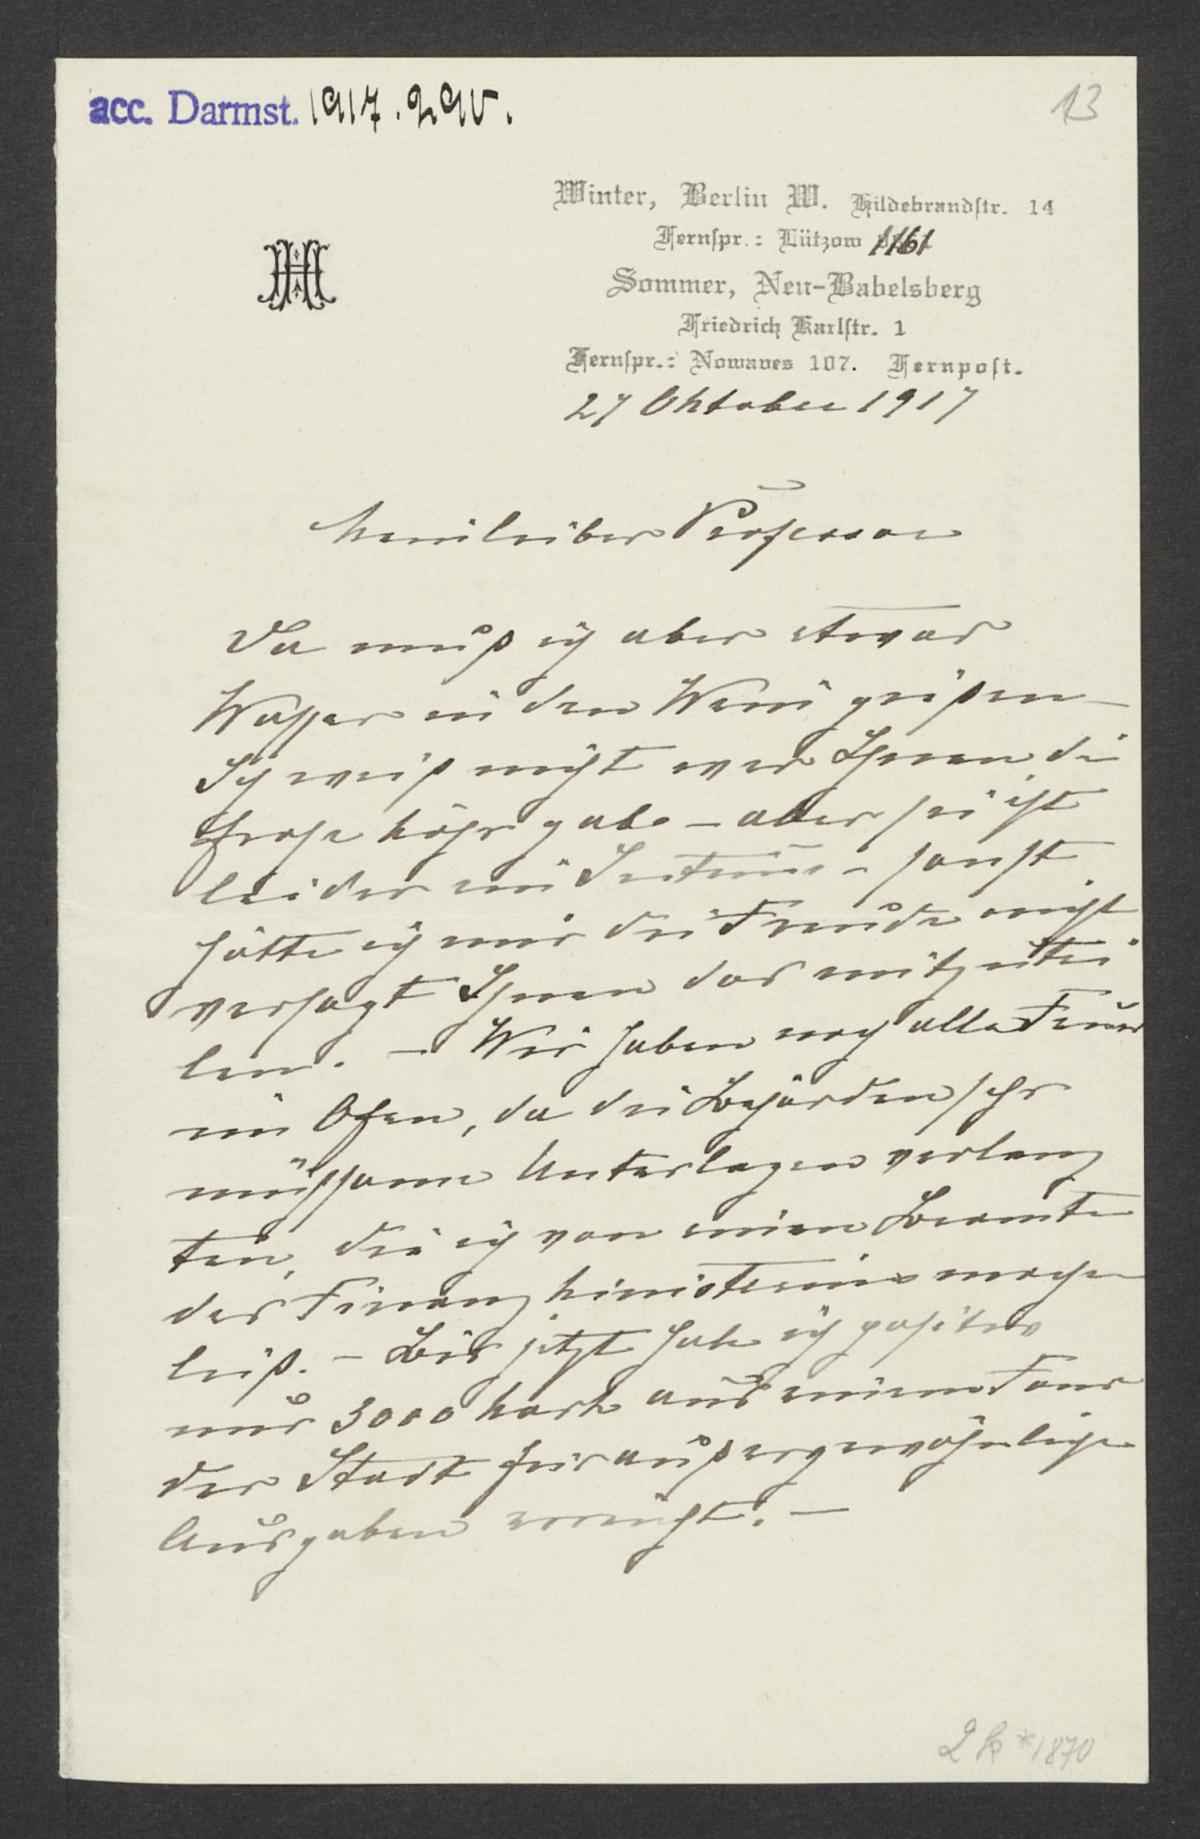 acc. Darmst. 1917.295.
13
Winter, Berlin W. Hildebrandstr. 14
Fernspr.: Lützow 1161
HH
Sommer, Neu-Babelsberg
Friedrich Karlstr. 1
Fernspr.: Nowawes 107. Fernpost.
27 Oktober 1917
Mein lieber Professor
Da muß ich aber etwas
Wasser in den Wein gießen –
Ich weiß nicht wer Ihnen die
frohe gab – aber sie ist
leider ein – sonst
hätte ich mir die Freude nicht
versagt Ihnen das mitzutei
len. – Wir haben noch alle Feuer
im Ofen, da die Behörden sehr
mühsame Unterlagen verlang
ten, die ich von einem Beamten
des Finanz Ministeriums machen
ließ. – Bis jetzt habe ich positiv
nur 3000 Mark aus einem Fons
der Stadt für außergewöhnliche
Ausgaben erreicht. –
2 k *1870